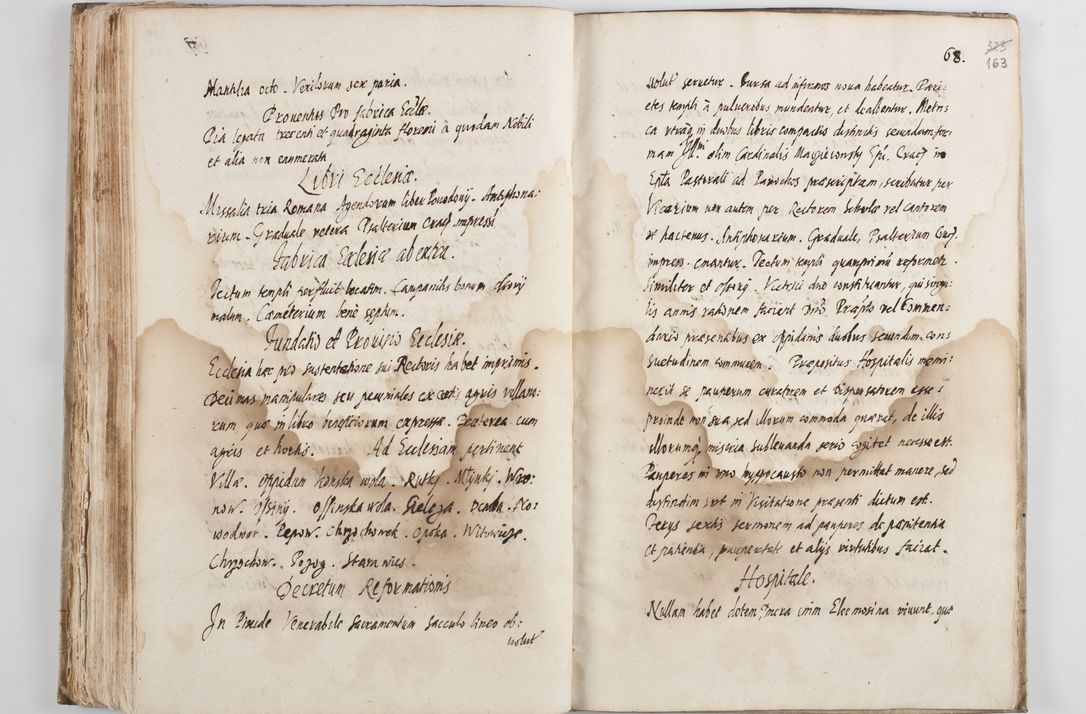 Mantilia octo. Vexillorum sex paria.
Prouentus Pro fabrica Eccłæ.
Pia legata trecenti et quadraginta florenī à quodam Nobili
et alia non enumerata
Libri Ecclesiæ.
Missalia tria Romana Agendorum liber Antiphona:
rium. Graduale vetera Psalterium Crac impressi
Fabrica Ecclesiæ
Tectum templi perfluit locatim. Campanilis bonum
malum. Cæmeterium benè septum.
Fundatio et Prouisio Ecclesiæ.
Ecclesia hæc prò sustentatione sui Rectoris habet imprimis.
Decimas manipulares seu pecuniales ex certis agris villana:
rum quæ in libro beneficiorum expressæ. Præterea cum
agris et hortis. Ad Ecclesiam pertinent
Villæ. Oppidum końska wola. Rutki. Młynki. Wro:
now. Ossiny. Ossinska wola. No:
wodwor. Chrzochowek. Opoka. Witowice.
Chrzochow. Pozog. Stara wies.
Decretum Reformationis
In Pixide Venerabile Sacramentum sacculo lineo ob:
uolut
68.
325
163
uolut seruetur. Bursa ad infirmos noua habeatur. Pari:
etes templi à pulueribus mundentur, et dealbentur. Metri:
ca vtraq in duobus libris compactis distinctis secundum for:
mam Illmi. olim Cardinalis Maciejowsky Epi. Crac in
Epła Pastorali ad Parochos præscriptam, scribatur per
Vicarium non autem per Rectorem Scholæ vel cantorem
vt hactenus. Antiphonarium. Graduale, Psalterium Crac.
impress. emantur. Tectum templi quamprimū reformetr.
Similiter et ossiny. Vitrici duo constituantur, qui singu:
lis annis rationem faciant Dnō Præpto vel Commen:
dario præsentibus ex oppidanis duobus secundum con:
suetudinem communem. Præpositus Hospitalis memi:
nerit se pauperum curatorem et dispensatorem esse:
proinde non sua sed illorum commoda quærat, de illis
illorumq miseria subleuanda seriò cogitet necesse est.
Pauperes in vno hyppocausto non permittat manere, sed
distinctim vt in Visitatione præsenti dictum est.
Ferys sextis sermonem ad pauperes de pœnitentia
et patientia, paupertate et alijs virtutibus faciat.
Hospitale.
Nullam habet dotem, mera enim Eleemosina viuunt, quæ